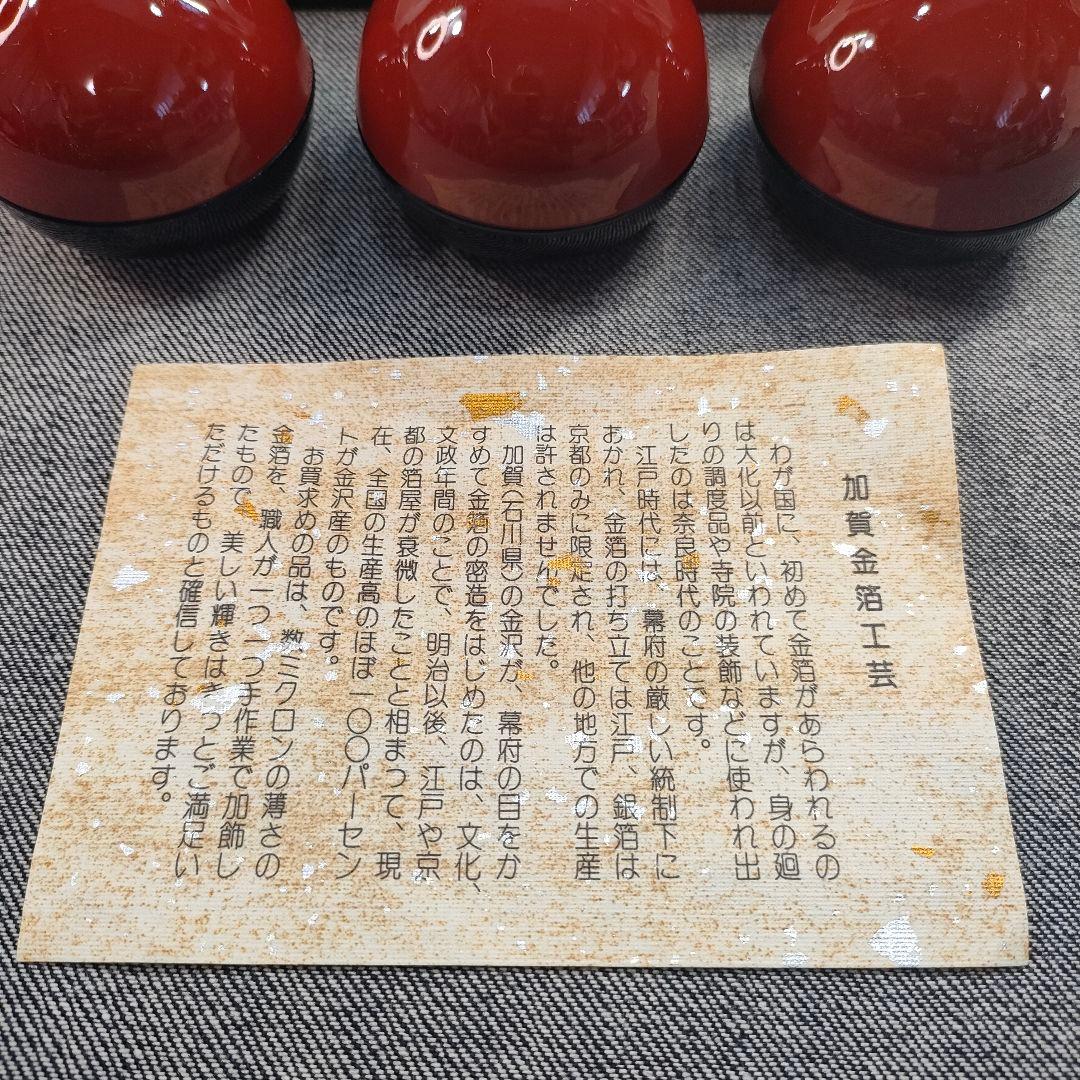 加賀金箔工芸
わが国に、初めて金箔があらわれるの
は大化以前といわれていますが、身の廻
りの調度品や寺院の装飾などに使われ出
したのは奈良時代のことです。
江戸時代には、幕府の厳しい統制下に
おかれ、金箔の打ち立ては江戸、銀箔は
京都のみに限定され、他の地方での生産
は許されませんでした。
加賀(石川県)の金沢が、幕府の目をか
すめて金箔の密造をはじめたのは、文化、
文政年間のことで、明治以後、江戸や京
都の箔屋が衰微したことと相まって、現
在、全国の生産高のほぼ一〇〇パーセン
トが金沢産のものです。
お買求めの品は、数ミクロンの薄さの
金箔を、職人が一つ一つ手作業で加飾し
たもので、美しい輝きはきっとご満足い
ただけるものと確信しております。